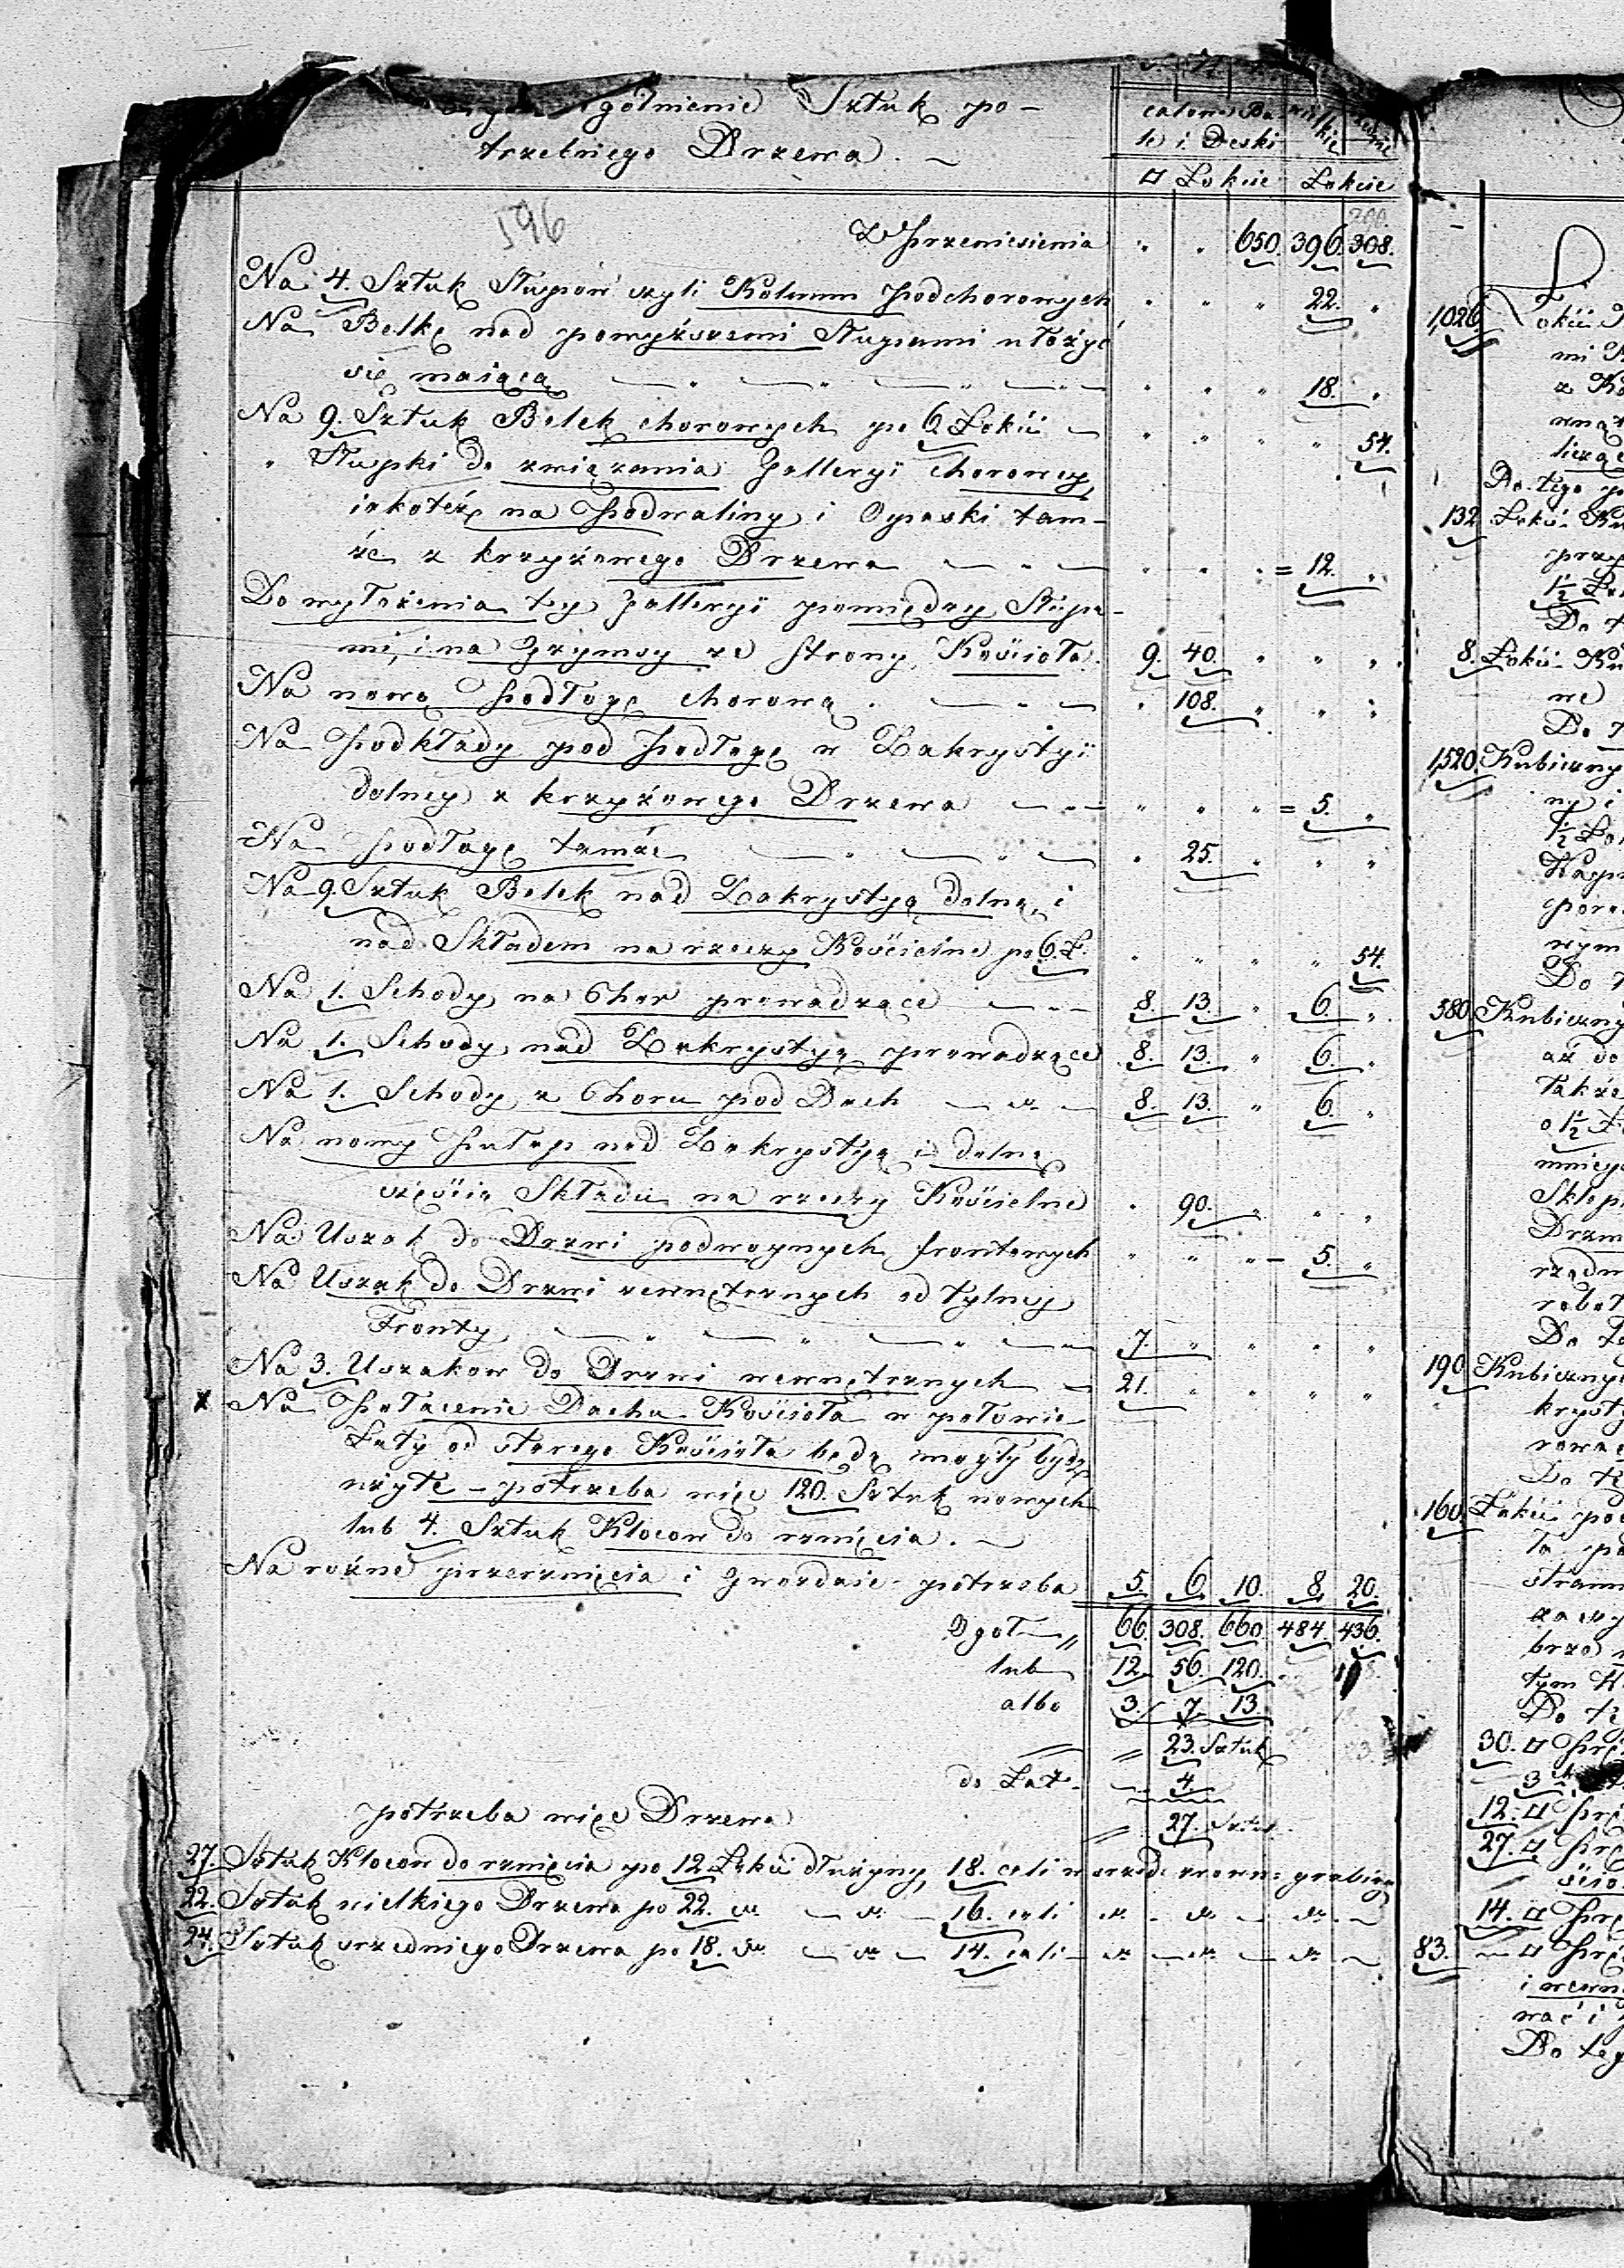 gólnienie Sztuk po-
trzebnego Drzewa. —
calowe Ba wielkie
le i Deski
□ Łokcie Łokcie
596
Z Przeniesienia " " 650. 396. 308.
200.
Na 4. Sztuk Słupów czyli Kolumn Podchorowych " " " 22. "
Na Belkę nad powyższemi Słupami ułożyć
się maiącą — " — " — " — " " " " 18. "
Na 9. Sztuk Belek chorowych po 6. Łokci — " " " " 54.
" Słupki do związania Galleryi chorowey,
iakoteż na Podwaliny i Opaski tam-
że z krzyżowego Drzewa — " — " " " = 12. "
Do wyłożenia tey Galleryi pomiędzy Słupa-
mi, i na Gzymsy ze strony Kościoła. 9. 40. " " "
Na nową Podłogę chorową . — " — " 108. " " "
Na Podkłady pod Podłogę w Zakrystyi
dolney z krzyżowego Drzewa — " — " " " = 5. "
Na Podłogę tamże — " — " — " 25. " " "
Na 9. Sztuk Belek nad Zakrystyą dolną, i
nad Składem na rzeczy Kościelne po 6. Ł. " " " " 54.
Na 1. Schody na Chor prowadzące — " — 8. 13. " 6. "
Na 1. Schody nad Zakrystyą prowadzące 8. 13. " 6. "
Na 1. Schody z Choru pod Dach — " — 8. 13. " 6. "
Na nowy Pułap nad Zakrystyą i dolną
częścią Składu na rzeczy Kościelne " 90. " " "
Na Uszak do Drzwi podwoynych frontowych " " " — 5. "
Na Uszak do Drzwi zewnętrznych od tylney
Fronty — " — " — " — 7. " " " "
Na 3. Uszakow do Drzwi wewnętrznych — 21. " " " "
x Na Połacenie Dachu Kościoła w połowie
Łaty od starego Kościoła będą mogły bydź
użyte — potrzeba więc 120. Sztuk nowych
lub 4. Sztuk Klocow do rznięcia. —
Na rożne przerznięcia i Gwozdzie potrzeba 5. 6. 10. 8. 20.
Ogoł — " 66. 308. 660. 484. 436.
lub 12. 56. 120.
albo 3. 7. 13.
= 23. Sztuk
do Łat — 4.
potrzeba więc Drzewa = 27. Sztuk
27. Sztuk Klocow do rznięcia po 12. Łokci dłużyny, 18. cali w srzod: zrown: grubizny
22. Sztuk wielkiego Drzewa po 22. " — " — 16. cali " — " — " —
24. Sztuk srzedniego Drzewa po 18. " — " — 14. cali — " — " — " —
1,026. Łokci
mi
z
Do tego
132. Łokci
przy
1½
Do
8. Łokci
ne
Do
1,520. Kubiczny
1½
Do
380. Kubiczny
aż do
także
o 1½
mniey
Sklep
Drzw
robot
Do
190. Kubiczny
kryst
Do te
160. Łokci
brze
tym
Do te
30. □
3
12. □
27. □
14. □
83. — □
i wewn
wać i
Do tey